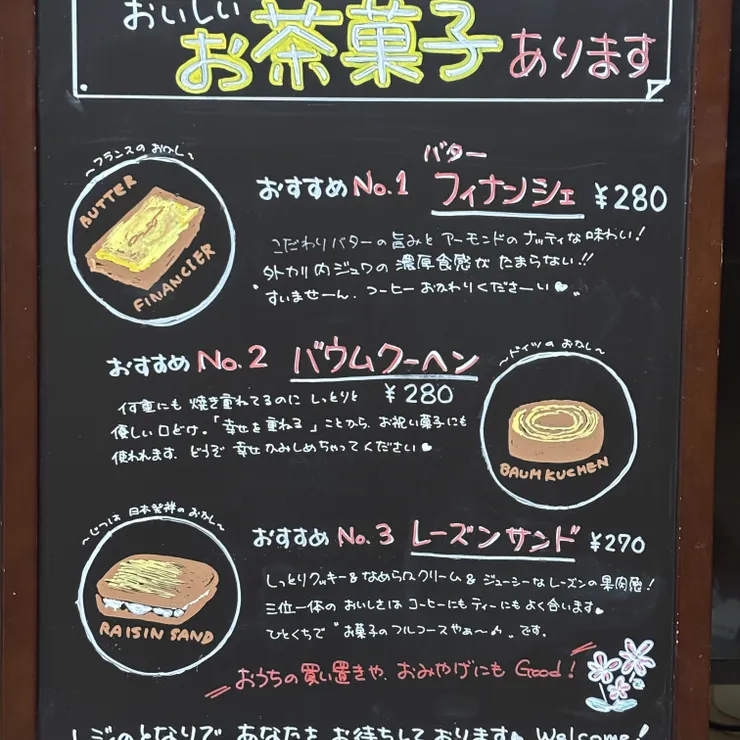 おいしい
お茶菓子あります
～フランスのおかし～
BUTTER
FINANCIER
おすすめ No.1 バターフィナンシェ ¥280
こだわりバターの旨みと アーモンドの ナッティな味わい!
外カリ内ジュワの 濃厚食感が たまらない!!
"すいませーん、コーヒー おかわりくださーい♥"
おすすめ No.2 バウムクーヘン
¥280
～ドイツの おかし～
BAUMKUCHEN
何重にも 焼き重ねてるのに しっとりと
優しい口どけ。「幸せを重ねる」ことから、お祝い菓子にも
使われます。どうぞ 幸せ かみしめちゃってください♥
～じつは 日本発祥の おかし～
RAISIN SAND
おすすめ No.3 レーズンサンド ¥270
しっとりクッキー & なめらかクリーム & ジューシーな レーズンの 果肉感!
三位一体の おいしさは コーヒーにも ティーにも よく合います♥
ひとくちで "お菓子のフルコースやぁ～" です。
おうちの買い置きや、おみやげにも Good!
レジのとなりで あなたを お待ちしております♥ Welcome!